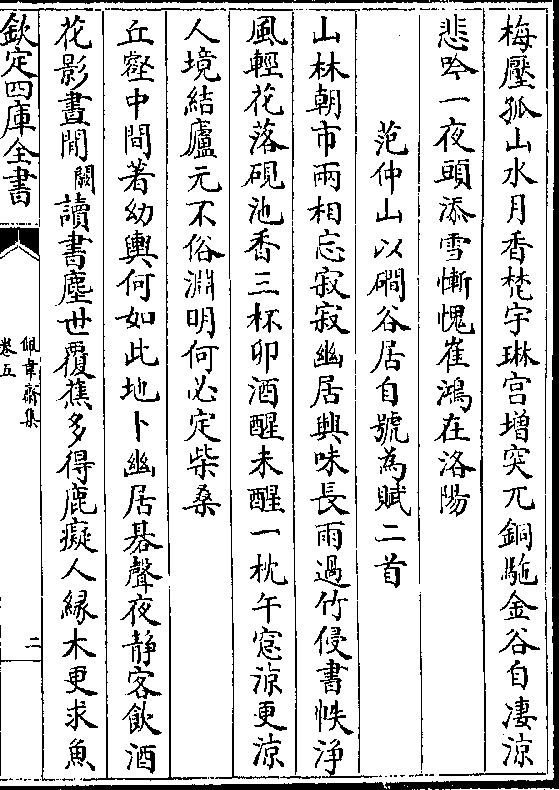 梅壓孤山水月香梵宇琳宫増突兀銅駞金谷自凄涼
悲吟一夜頭添雪慚愧崔鴻在洛陽
范仲山以磵谷居自號為賦二首
山林朝市兩相忘寂寂幽居興味長雨過竹侵書帙浄
風輕花落硯池香三杯卯酒醒未醒一枕午窓涼更涼
人境結廬元不俗淵明何必定柴桑
丘壑中間著幼輿何如此地卜幽居棊聲夜靜客飲酒
花影晝閒闕讀書塵世覆蕉多得鹿癡人縁木更求魚
欽定四庫全書
佩韋齋集
卷五
二